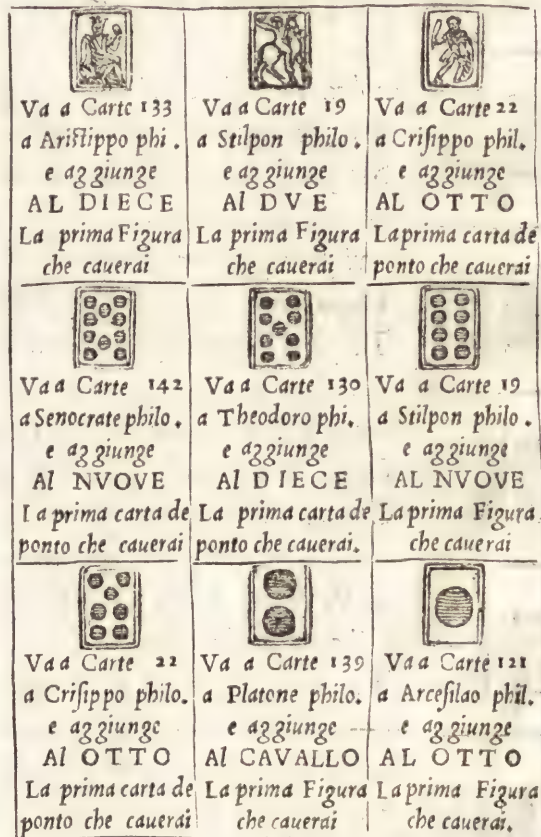 Va a Carte 133
a Ariſtippo phi.
e aggiunge
AL DIECE
La prima Figura
che cauerai
Va a Carte 19
a Stilpon philo.
e aggiunge
Al DVE
La prima Figura
che cauerai
Va a Carte 22
a Criſippo phil.
e aggiunge
AL OTTO
La prima carta de
ponto che cauerai
Va a Carte 142
a Senocrate philo.
e aggiunge
Al NVOVE
La prima carta de
ponto che cauerai
Va a Carte 130
a Theodoro phi.
e aggiunge
Al DIECE
La prima carta de
ponto che cauerai.
Va a Carte 19
a Stilpon philo.
e aggiunge
AL NVOVE
La prima Figura
che cauerai
Va a Carte 22
a Criſippo philo.
e aggiunge
Al OTTO
La prima carta de
ponto che cauerai
Va a Carte 139
a Platone philo.
e aggiunge
Al CAVALLO
La prima Figura
che cauerai
Va a Carte 121
a Arceſilao phil.
e aggiunge
AL OTTO
La prima Figura
che cauerai.